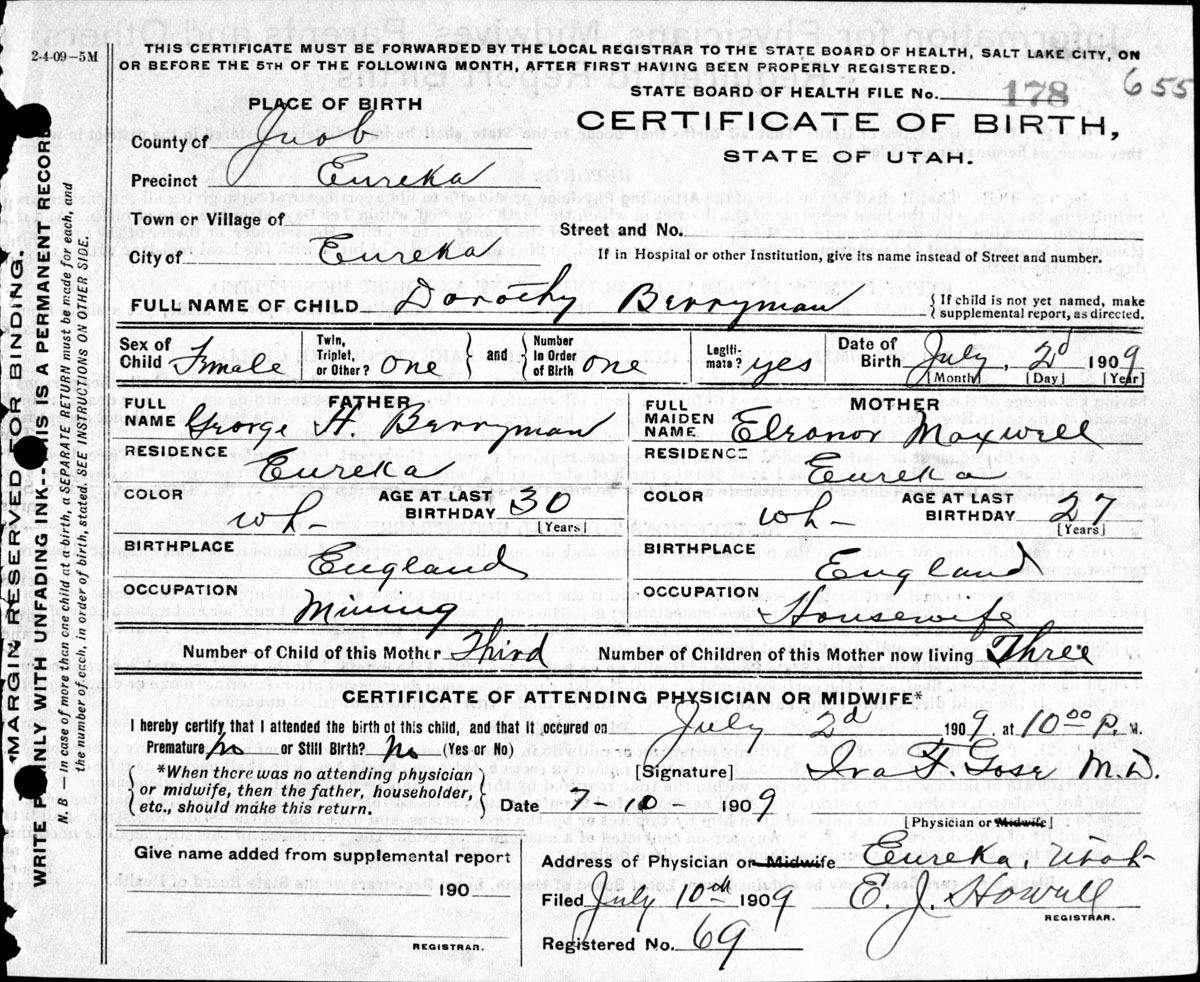 2-4-09-5M
THIS CERTIFICATE MUST BE FORWARDED BY THE LOCAL REGISTRAR TO THE STATE BOARD OF HEALTH, SALT LAKE CITY, ON
OR BEFORE THE 5TH OF THE FOLLOWING MONTH, AFTER FIRST HAVING BEEN PROPERLY REGISTERED.
STATE BOARD OF HEALTH FILE No. 178 655
PLACE OF BIRTH
CERTIFICATE OF BIRTH,
STATE OF UTAH.
County of Juab
Precinct Eureka
Town or Village of
Street and No.
City of Eureka
If in Hospital or other Institution, give its name instead of Street and number.
FULL NAME OF CHILD Dorothy Berryman
{ If child is not yet named, make
supplemental report, as directed.
Sex of Child Female
Twin, Triplet, or Other? one
and
Number in Order of Birth one
Legitimate? yes
Date of Birth July, 2d 1909
[Month] [Day] [Year]
FATHER
FULL NAME George H. Berryman
RESIDENCE
Eureka
COLOR wh-
AGE AT LAST BIRTHDAY 30
[Years]
BIRTHPLACE
England
OCCUPATION
Mining
MOTHER
FULL MAIDEN NAME Eleanor Maxwell
RESIDENCE
Eureka
COLOR wh-
AGE AT LAST BIRTHDAY 27
[Years]
BIRTHPLACE
England
OCCUPATION
Housewife
Number of Child of this Mother Third
Number of Children of this Mother now living Three
CERTIFICATE OF ATTENDING PHYSICIAN OR MIDWIFE*
I hereby certify that I attended the birth of this child, and that it occured on July 2d 1909. at 10 00 P. M.
Premature No or Still Birth? No (Yes or No)
{ *When there was no attending physician
or midwife, then the father, householder,
etc., should make this return. }
[Signature] M.D.
Date 7-10-1909
[Physician or Midwife]
Give name added from supplemental report
190
REGISTRAR.
Address of Physician or Midwife Eureka, Utah
Filed July 10th 1909 E. J. Howell
REGISTRAR.
Registered No. 69
*MARGIN RESERVED FOR BINDING.
WRITE ONLY WITH UNFADING INK- IS A PERMANENT RECORD
N. B. — In case of more then one child at a birth, a SEPARATE RETURN must be made for each, and
the number of each, in order of birth, stated. SEE INSTRUCTIONS ON OTHER SIDE.